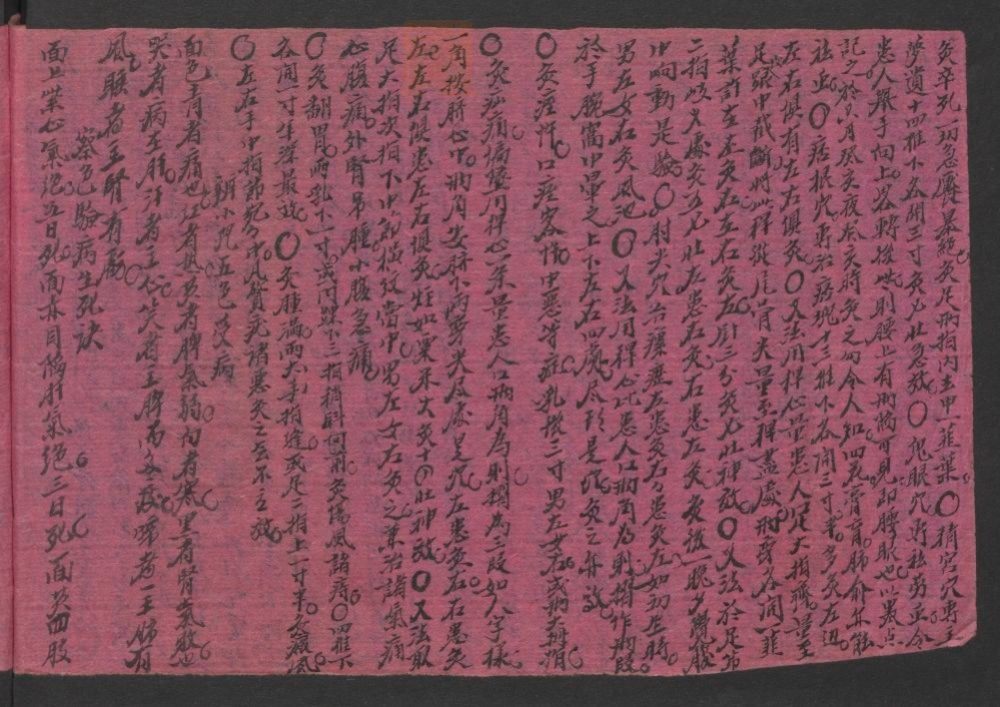 灸卒死一切急魘暴絕灸足兩拇指內去甲一韮葉〇精宮穴專主
夢遺十四椎下各開三寸灸七壯急效〇鬼眼穴專祛勞虫令
患人舉手向上畧轉後些則腰上有兩陷可見即腰眼也以墨点
記之於六月癸亥夜亥時灸之勿令人知四花膏肓肺俞亦能
祛虫〇痞根穴專治痞塊十三椎下各開三寸半多灸左边
左右俱有左右俱灸〇又法用桿心量患人足大指齊量至
足跟中截斷將此桿從尾骨尖量至桿盡處兩旁各開一韮
葉許在左灸左在右灸右針三分灸七壯神效〇又法於足第
二指歧叉處灸五七壯左患左灸右患右灸灸後一晚夕覺腹
中响動是驗〇肘尖穴治瘰癧左患灸右右患灸左如初生時
男左女右灸風池〇又法用桿心比患人口兩角為則摺作兩段
於手腕窩中量之上下左右四處尽頭是穴灸之亦效
〇灸疰忤口疰客忤中惡等症乳後三寸男左女右或兩大拇指
〇灸疝痛偏墜用桿心一条量患人口兩角為則摺為三段如人字樣
一角按臍心中兩角安臍下兩旁尖尽處是穴左患灸右右患灸
左左右俱患左右俱灸炷如粟米大灸十四壯神效〇又法取
足大指次指下中節橫紋當中男左女右灸之兼治諸氣痛
心腹痛外腎吊腫小腹急痛
〇灸翻胃兩乳下一寸或內踝下三指稍斜向前灸傷風諸痔〇四椎下
各開一寸牛深最效〇灸腫滿兩大手指縫或足二指上一寸半灸癜風
〇左右手中指節宛宛中凡贅疣諸患灸之無不立效
辨小兒五色受病
面色青者痛也紅者热黃者脾氣弱白者寒黑者腎氣敗也
哭者病在肝汗者主心笑者主脾而多痰啼者主肺有
風睡者主腎有虧
察色驗病生死訣
面上紫心氣絕五日死面赤目陷肝氣絕三日死面黃四肢